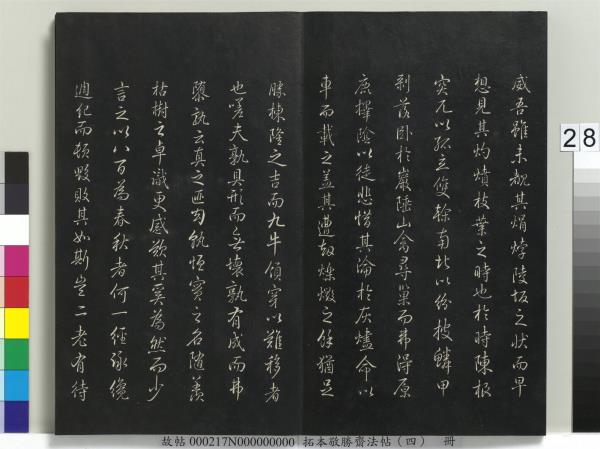 威吾雖未覩其焆㶿陵坂之狀而早
想見其灼墳枝葉之時也於時陳根
突兀以孤立雙榦南北以紛披鱗甲
剥落卧於巖陲山禽尋巢而弗得原
庶擇陰以徒悲惜其淪於灰燼命以
車而載之蓋其遭鼓爍燬之餘猶足
勝棟隆之吉而九牛領穿以難移者
也嗟夫孰具形而無壞孰有成而弗
隳孰云真之匪勾孰恒實之名随羡
枯樹之卓識更感歎其奚為然而少
言之以八百為春秋者何一經詠儳
週紀而頓毀敗其如斯豈二老有待
28
故帖 000217N000000000 拓本敬勝齋法帖（四） 冊